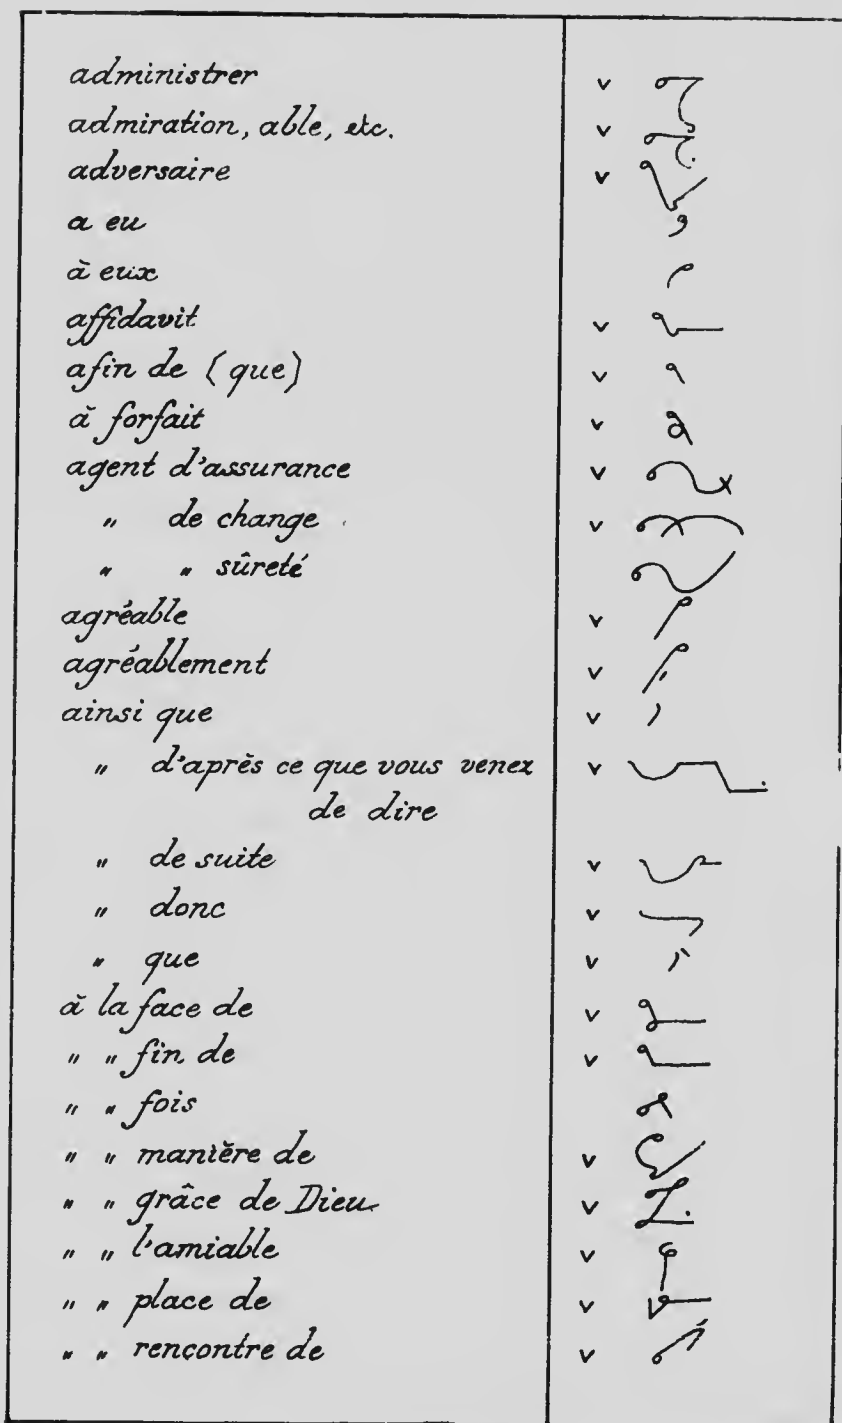 administrer v
admiration, able, etc. v
adversaire v
a eu
à eux
affidavit v
afin de (que) v
à forfait v
agent d'assurance v
" de change v
" " sûreté
agréable v
agréablement v
ainsi que v
" d'après ce que vous venez v
de dire
" de suite v
" donc v
" que v
à la face de v
" " fin de v
" " fois
" " manière de v
" " grâce de Dieu v
" " l'amiable v
" " place de v
" " rencontre de v